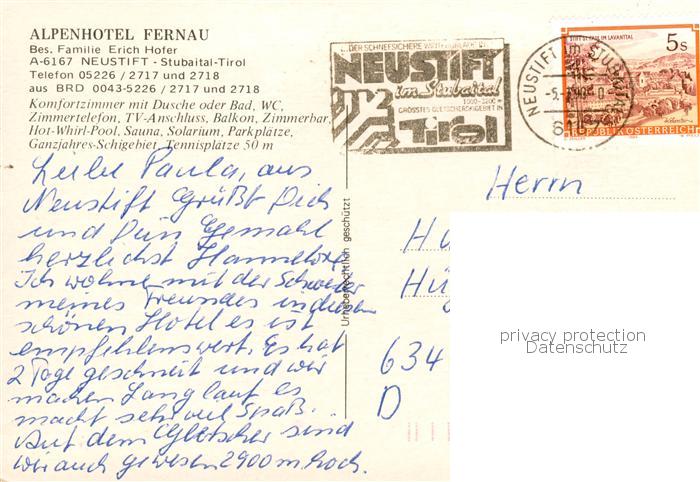 ALPENHOTEL FERNAU
Bes. Familie Erich Hofer
A-6167 NEUSTIFT - Stubaital-Tirol
Telefon 05226 / 2717 und 2718
aus BRD 0043-5226 / 2717 und 2718
Komfortzimmer mit Dusche oder Bad, WC,
Zimmertelefon, TV-Anschluss, Balkon, Zimmerbar,
Hot-Whirl-Pool, Sauna, Solarium, Parkplätze,
Ganzjahres-Schigebiet, Tennisplätze 50 m
Liebe Paula, aus
Neustift Grüßt Dich
und Dein Gemahl
herzlichst Hannelore
Ich wohne mit der Schwester
meines Freundes in diesem
schönen Hotel es ist
empfehlenswert. Es hat
2 Tage geschneit und wir
machen Langlauf es
macht sehr viel Spaß.
Auf dem Gletscher sind
wir auch gewesen 2900 m hoch.
Urheberrechtlich geschützt
DER SCHNEESICHERE
NEUSTIFT
im Stubaital
1000-3200 m
GRÖSSTES GLETSCHERSKIGEBIET IN
Tirol
NEUSTIFT IM STUBAITAL
STIFT ST. PAUL IM LAVANTTAL
5s
REPUBLIK ÖSTERREICH
Herrn
H
Hü
634
D
privacy protection
Datenschutz